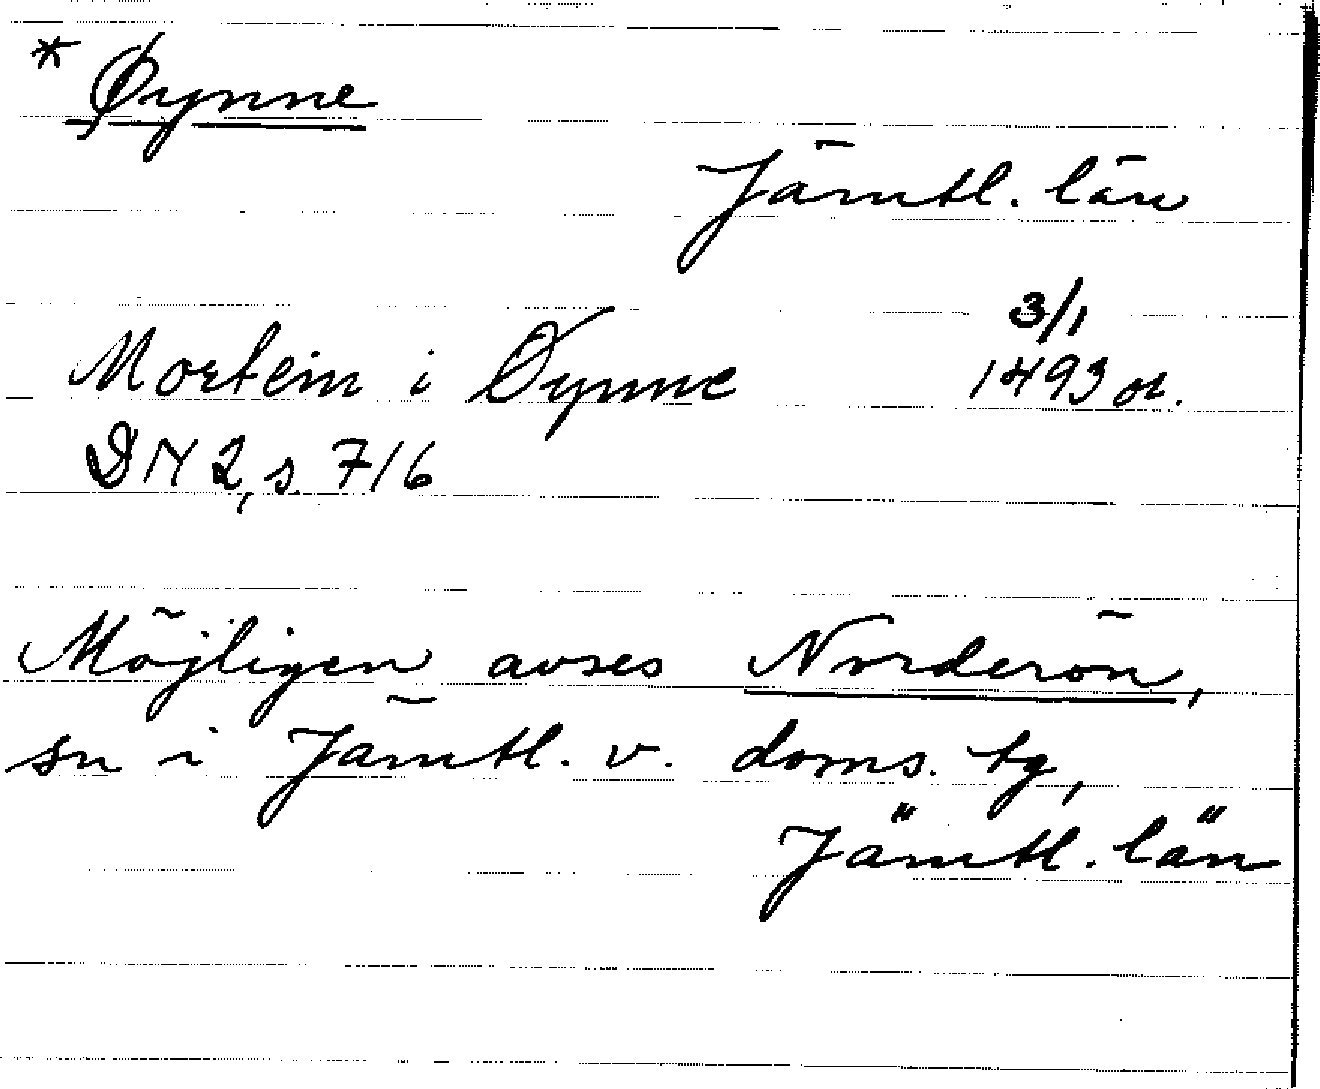 * Øynne
Jämtl. län
3/1
Mortein i Øynne 1493 or.
DN 2, s. 716
Möjligen avses Norderön,
sn i Jämtl. v. doms. tg,
Jämtl. län